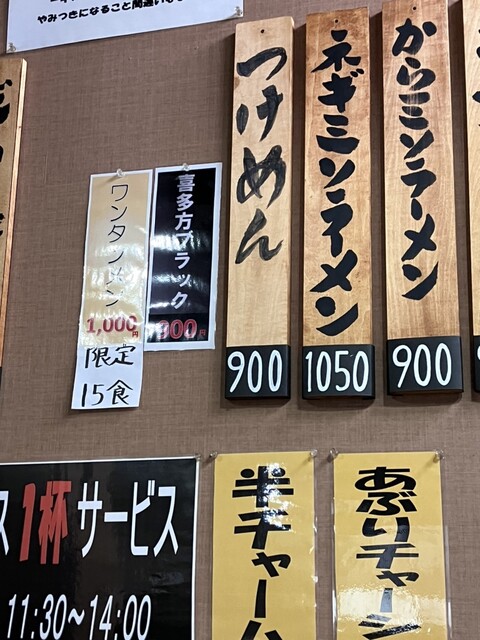 やみつきになること間違い
からミソラーメン
900
ネギミソラーメン
1050
つけめん
900
喜多方ブラック
900円
ワンタンメン
1,000円
限定
15食
ス1杯サービス
11:30~14:00
あぶりチャーシ
半チャーハ